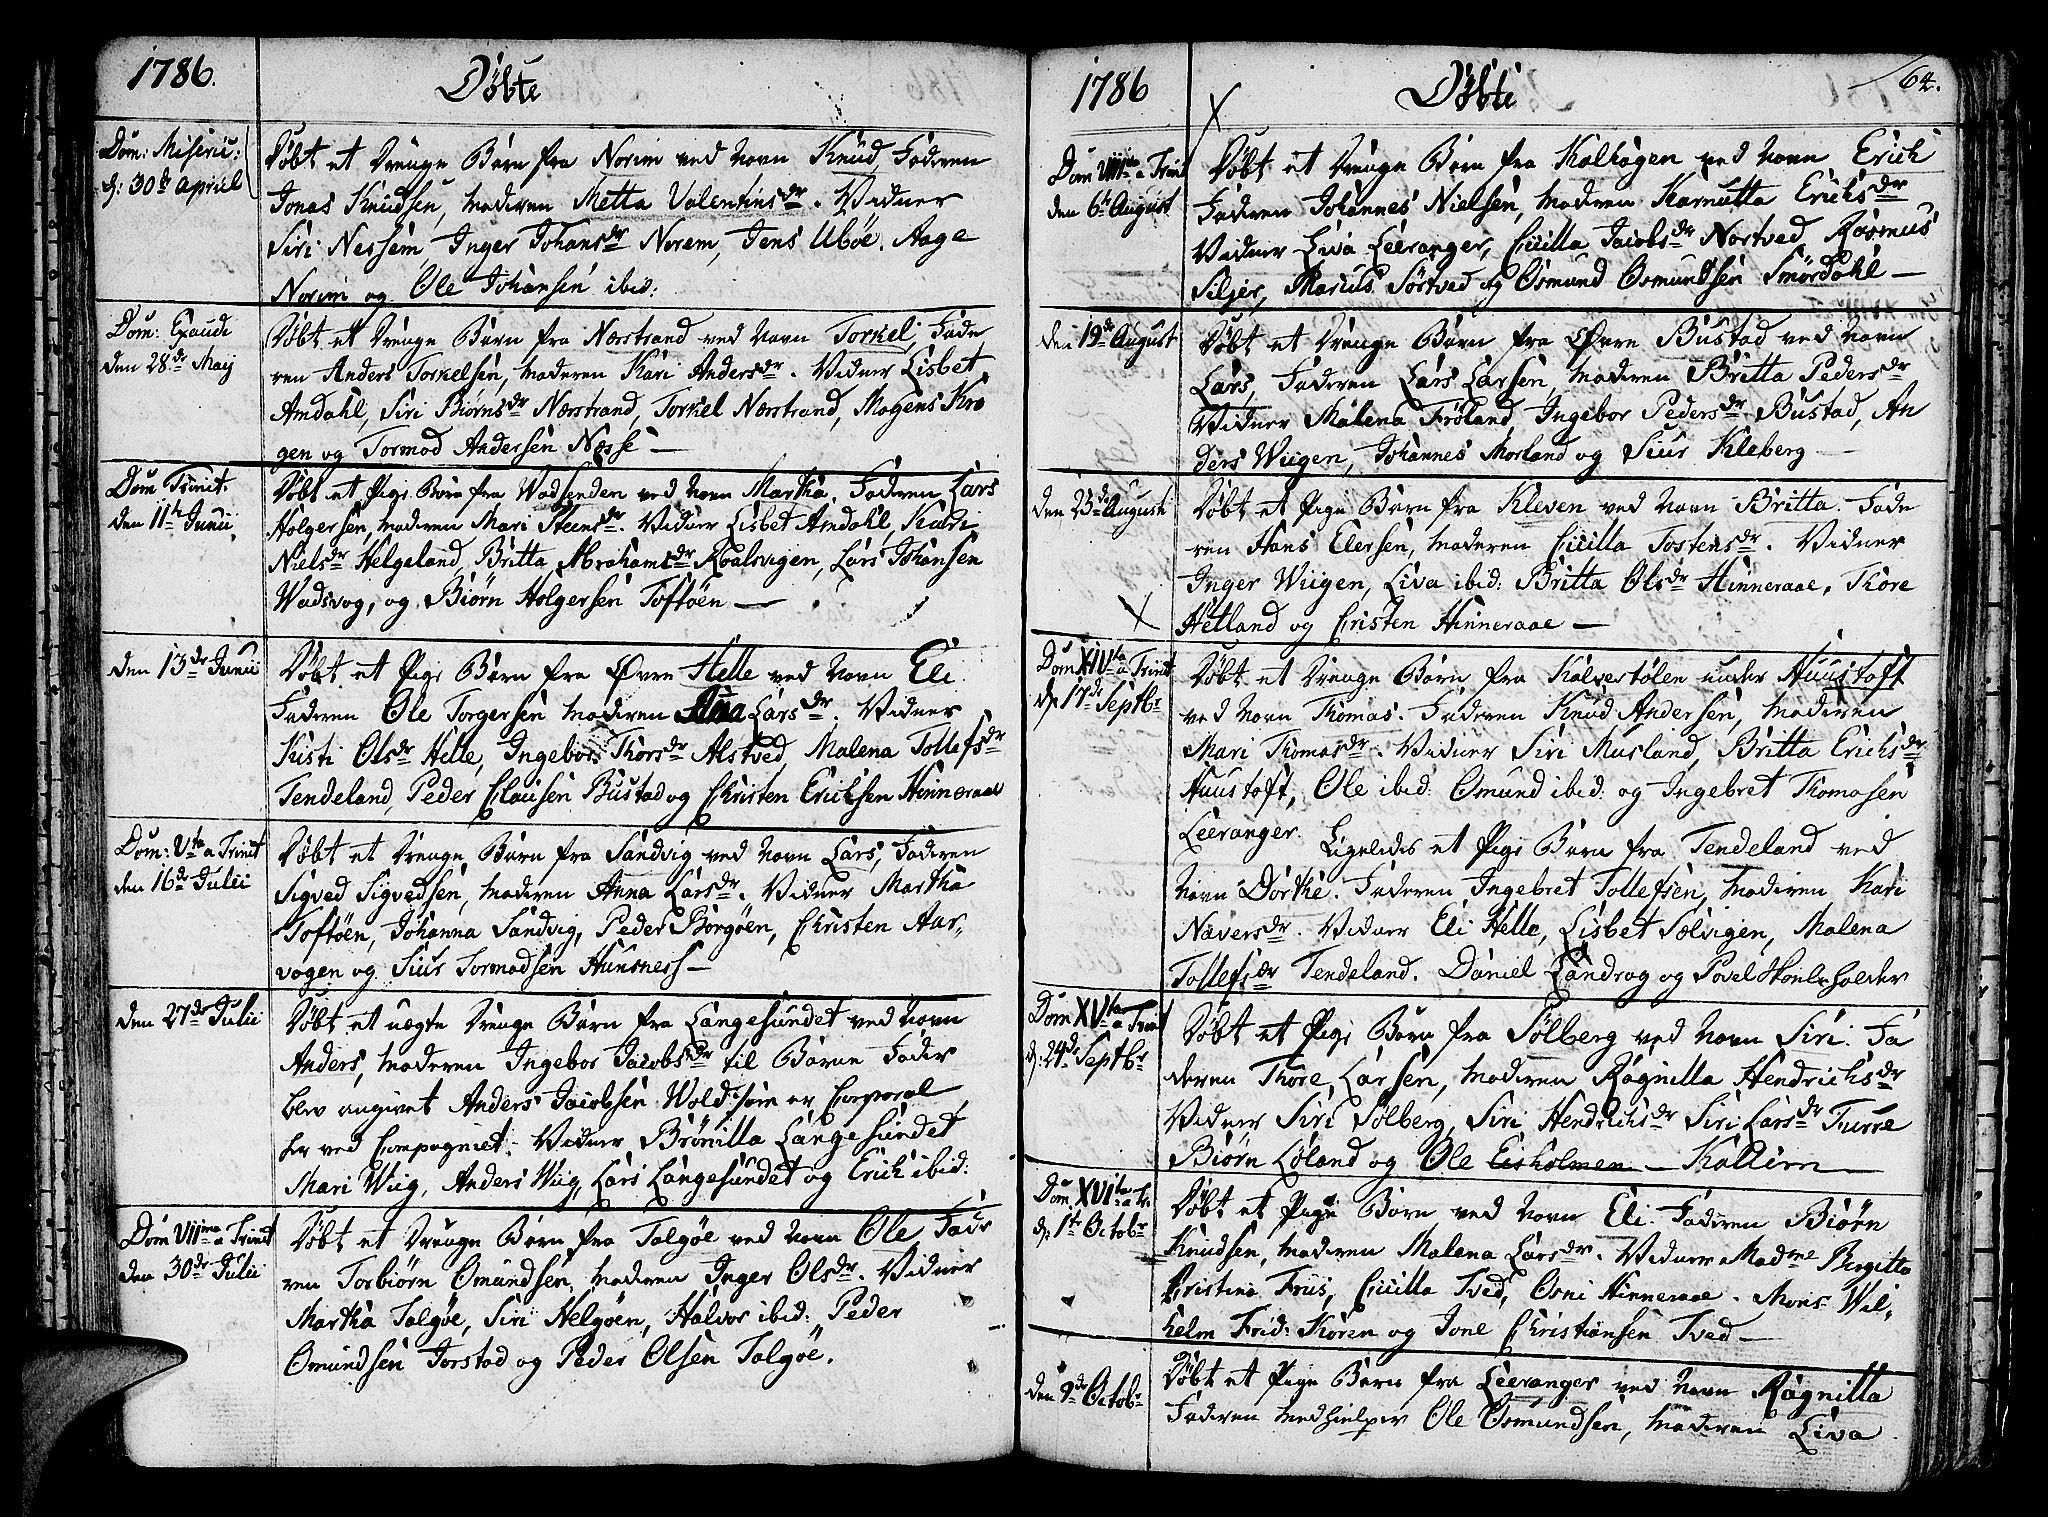 1786.
Döbte
Dom: Miseric:
d: 30de April
Döbt et Drenge Barn fra Norim ved Navn Knud, Faderen
Jonas Knudsen, Moderen Metta Valentinsdr. Vidner
Siri Nessem, Inger Johansdr Norem, Jens Ubøe. Aage
Norim og Ole Johansen ibid:
Dom: Exaudi
den 28de May
Döbt et Drenge Barn fra Nærstrand ved Navn Torkel, Fade
ren Anders Torkelsen, Moderen Kari Andersdr. Vidner Lisbet
Amdahl, Siri Biørnsdr Nærstrand, Torkel Nærstrand, Mogens Kro
gen og Tormod Andersen Næsse —
Dom Trinit.
den 11te Junii
Döbt et Pige Barn fra Vadsenden ved Navn Martha. Faderen Lars
Holgersen, Moderen Mari Steensdr. Vidner Lisbet Amdahl, Kari
Nielsdr Helgeland, Britta Abrahamsdr Roalsvigen, Lars Johansen
Vadsvog, og Biørn Holgersen Toftøen —
den 13de Junii
Döbt et Pige Barn fra Øvre Helle ved Navn Eli
Faderen Ole Torgersen Moderen Ana Larsdr. Vidner
Kisti Olsdr Helle, Ingebor Thorsdr Alstved, Malena Tollefsdr
Tendeland, Peder Clausen Bustad og Christen Erichsen Hinneraae
Dom: Vta a Trinit
den 16de Julii
Döbt et Drenge Barn fra Sandvig ved Navn Lars, Faderen
Sigved Sigvedsen, Moderen Anna Larsdr. Vidner Martha
Toftøen, Johanna Sandvig, Peder Borgøen, Christen Aar-
vogen og Siur Tormodsen Hunsness —
den 27de Julii
Döbt et uægte Drenge Barn fra Langesundet ved Navn
Anders, Moderen Ingebor Jacobsdr til Barne Fader
blev angivet Anders Jacobsen Wold som er Corporal
her ved Compagniet. Vidner Brønilla Langesundet
Mari Wiig, Anders Wiig, Lars Langesundet og Erich ibid:
Dom VIIma a Trinit
den 30de Julii
Döbt et Drenge Barn fra Talgøe ved Navn Ole Fade
ren Torbiørn Omundsen, Moderen Inger Olsdr. Vidner
Martha Talgøe, Siri Helgøen, Halvor ibid: Peder
Omundsen Jorstad og Peder Olsen Talgøe.
1786
Döbte
64.
Dom VIIIva a Trinit
den 6te August
Döbt et Drenge Barn fra Kalhagen ved Navn Erich
Faderen Johannes Nielsen, Moderen Karnutta Erichsdr
Vidner Liva Leeranger, Cicilla Jacobsdr Nortved, Rasmus
Siljer, Marcus Sørtved og Osmund Osmundsen Smördahl —
den 19de August
Döbt et Drenge Barn fra Øvre Bustad ved Navn
Lars, Faderen Lars Larsen, Moderen Britta Pedersdr
Vidner Malena Frøland, Ingebor Pedersdr Bustad, An
ders Wiigen, Johannes Morland og Siur Kleberg —
den 23de August
Döbt et Pige Barn fra Kleven ved Navn Britta. Fade
ren Hans Elersen, Moderen Cicilla Tostensdr. Vidner
Inger Wiigen, Liva ibid: Britta Olsdr Hinneraae, Thore
Hetland og Cristen Hinneraae —
Dom XIVta a Trinit
d: 17de Septbr
Döbt et Drenge Barn fra Kalvestølen under Huustoft
ved Navn Thomas. Faderen Knud Andersen, Moderen
Mari Thomasdr. Vidner Siri Musland, Britta Erichsdr
Huustoft, Ole ibid: Omund ibid: og Ingebret Thomasen
Leeranger. Ligeledes et Pige Barn fra Tendeland ved
Navn Dorthe. Faderen Ingebret Tollefsen, Moderen Kari
Naversdr. Vidner Eli Helle, Lisbet Sølvigen, Malena
Tollefsdr Tendeland. Daniel Landrog og Povel Skoeleholder
Dom XVta a Trinit
d: 24de Septbr
Döbt et Pige Barn fra Sølberg ved Navn Siri. Fa
deren Thore Larsen, Moderen Ragnilla Hendrichsdr
Vidner Siri Sølberg, Siri Hendrichsdr Siri Larsdr Furre
Biørn Løland og Ole Eisholmen — Kaldeim
Dom. XVIta a Tr.
d: 1te Octobr
Döbt et Pige Barn ved Navn Eli. Faderen Biørn
Knudsen, Moderen Malena Larsdr. Vidner Madme Birgitta
Cristina Friis, Cicilla Tved, Osni Hinneraae. Mons: Wil-
helm Frid: Koren og Jone Christiansen Tved —
den 9de Octobr
Döbt et Pige Barn fra Leeranger ved Navn Ragnilla
Faderen Medhielper Ole Osmundsen, Moderen Liva